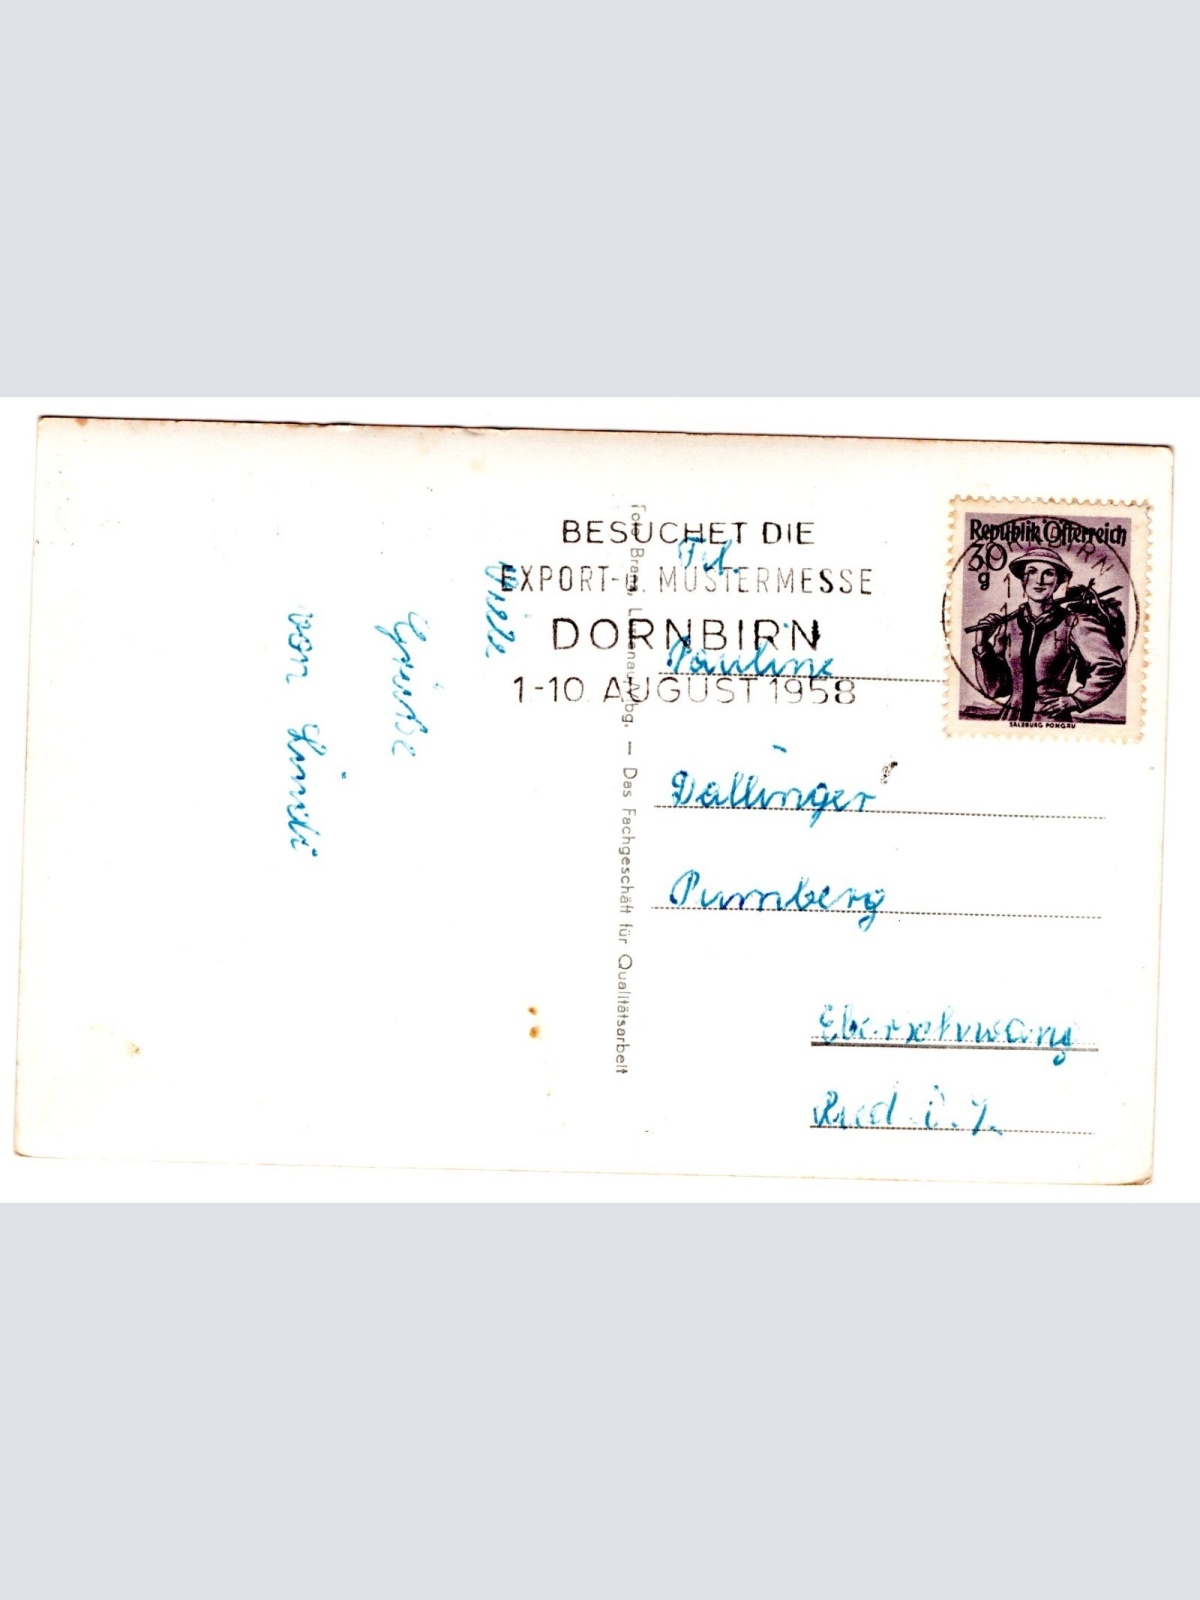 Viele
Grüsse
von
BESUCHET DIE
EXPORT- u. MUSTERMESSE
DORNBIRN
1-10. AUGUST 1958
Republik Österreich
30
g
SALZBURG PONGAU
DORNBIRN
Foto Braun, Lustenau, Vbg. — Das Fachgeschäft für Qualitätsarbeit
Frl.
Pauline
Dallinger
Pumberg
Eberschwang
Ried i. I.